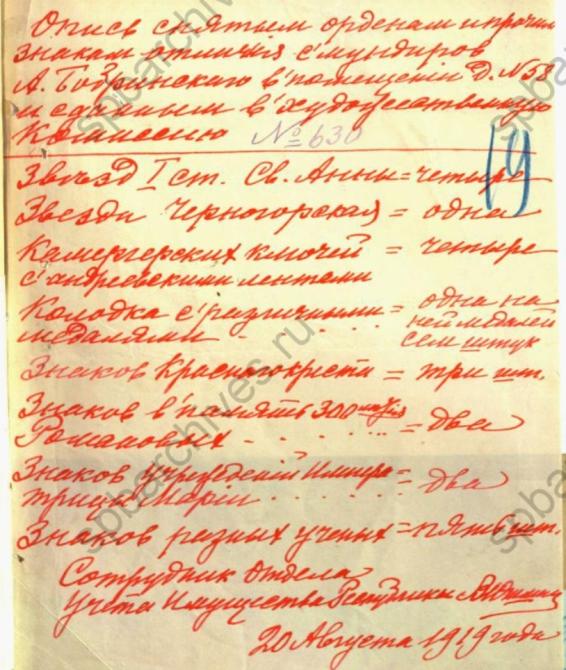 Опись снятым орденам и прочим
знакам отличия с мундиров
А. Бобринскаго в помещении д. № 58
и сданным в художественную
Комиссию № 630
19
Звезд I ст. Св. Анны = четыре
Звезда Черногорская = одна
Камергерских ключей = четыре
с андреевскими лентами
Колодка с различными = одна на
медалями - . . . . ней медалей
сем штук
Знаков Краснаго креста = три шт.
Знаков в память 300 летия
Романовых - . . . . = два
Знаков учреждений Импера=
трицы Марии . . . . . два
Знаков разных ученых = пять шт.
Сотрудник Отдела
Учёта Имущества Республики
20 Августа 1919 года
spbarchives.ru